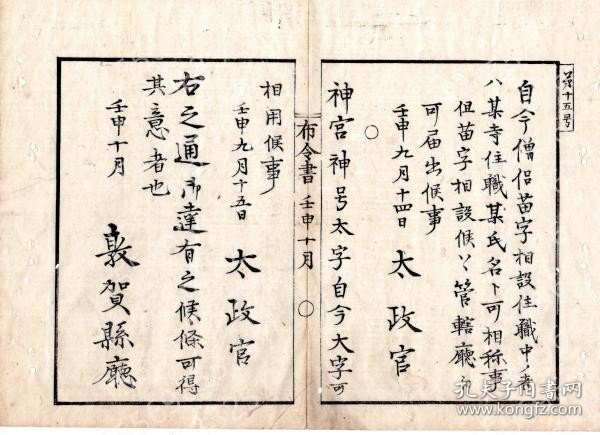 第十五号
自今僧侶苗字相設住職中ノ者
ハ某寺住職某氏名ト可相称事
但苗字相設候ハヽ管轄廳ヘ
可届出候事
壬申九月十四日 太政官
〇
神宮神号太字自今大字可
布令書 壬申十月 〇
相用候事
壬申九月十五日 太政官
右之通御達有之候條可得
其意者也
壬申十月 敦賀縣廳
孔夫子旧书网
www.kongfz.com